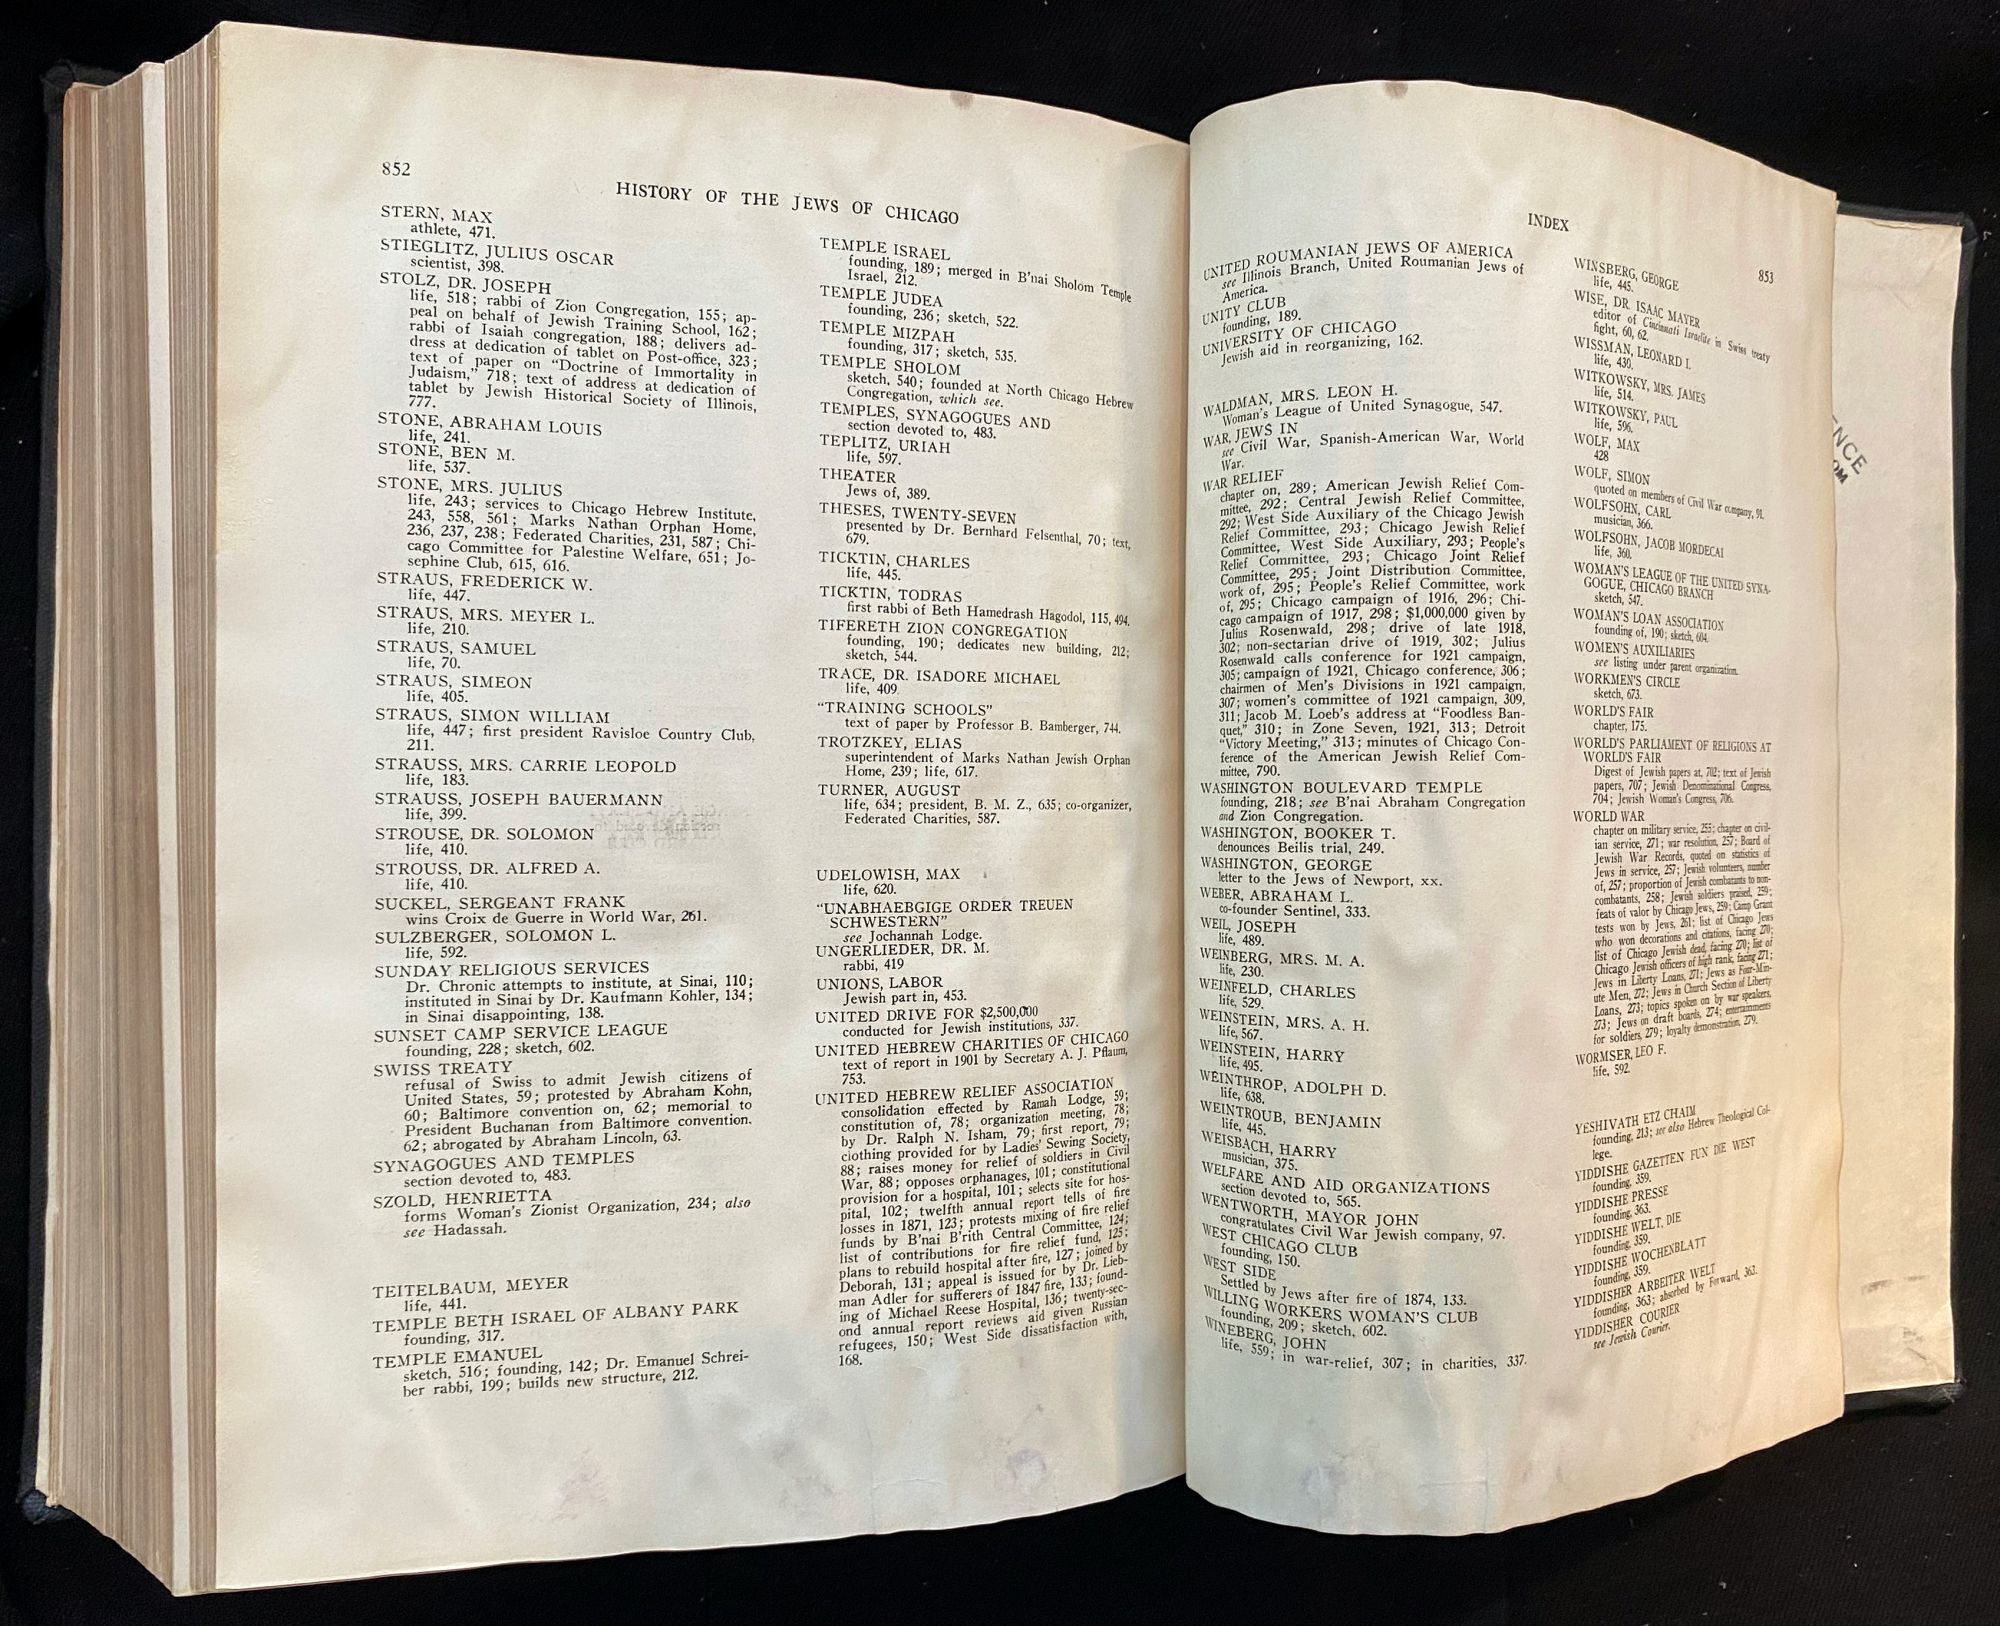 852
HISTORY OF THE JEWS OF CHICAGO
STERN, MAX
athlete, 471.
STIEGLITZ, JULIUS OSCAR
scientist, 398.
STOLZ, DR. JOSEPH
life, 518; rabbi of Zion Congregation, 155; ap-
peal on behalf of Jewish Training School, 162;
rabbi of Isaiah congregation, 188; delivers ad-
dress at dedication of tablet on Post-office, 323;
text of paper on "Doctrine of Immortality in
Judaism," 718; text of address at dedication of
tablet by Jewish Historical Society of Illinois,
777.
STONE, ABRAHAM LOUIS
life, 241.
STONE, BEN M.
life, 537.
STONE, MRS. JULIUS
life, 243; services to Chicago Hebrew Institute,
243, 558, 561; Marks Nathan Orphan Home,
236, 237, 238; Federated Charities, 231, 587; Chi-
cago Committee for Palestine Welfare, 651; Jo-
sephine Club, 615, 616.
STRAUS, FREDERICK W.
life, 447.
STRAUS, MRS. MEYER L.
life, 210.
STRAUS, SAMUEL
life, 70.
STRAUS, SIMEON
life, 405.
STRAUS, SIMON WILLIAM
life, 447; first president Ravisloe Country Club,
211.
STRAUSS, MRS. CARRIE LEOPOLD
life, 183.
STRAUSS, JOSEPH BAUERMANN
life, 399.
STROUSE, DR. SOLOMON
life, 410.
STROUSS, DR. ALFRED A.
life, 410.
SUCKEL, SERGEANT FRANK
wins Croix de Guerre in World War, 261.
SULZBERGER, SOLOMON L.
life, 592.
SUNDAY RELIGIOUS SERVICES
Dr. Chronic attempts to institute, at Sinai, 110;
instituted in Sinai by Dr. Kaufmann Kohler, 134;
in Sinai disappointing, 138.
SUNSET CAMP SERVICE LEAGUE
founding, 228; sketch, 602.
SWISS TREATY
refusal of Swiss to admit Jewish citizens of
United States, 59; protested by Abraham Kohn,
60; Baltimore convention on, 62; memorial to
President Buchanan from Baltimore convention.
62; abrogated by Abraham Lincoln, 63.
SYNAGOGUES AND TEMPLES
section devoted to, 483.
SZOLD, HENRIETTA
forms Woman's Zionist Organization, 234; also
see Hadassah.
TEITELBAUM, MEYER
life, 441.
TEMPLE BETH ISRAEL OF ALBANY PARK
founding, 317.
TEMPLE EMANUEL
sketch, 516; founding, 142; Dr. Emanuel Schrei-
ber rabbi, 199; builds new structure, 212.
TEMPLE ISRAEL
founding, 189; merged in B'nai Sholom Temple
Israel, 212.
TEMPLE JUDEA
founding, 236; sketch, 522.
TEMPLE MIZPAH
founding, 317; sketch, 535.
TEMPLE SHOLOM
sketch, 540; founded at North Chicago Hebrew
Congregation, which see.
TEMPLES, SYNAGOGUES AND
section devoted to, 483.
TEPLITZ, URIAH
life, 597.
THEATER
Jews of, 389.
THESES, TWENTY-SEVEN
presented by Dr. Bernhard Felsenthal, 70; text,
679.
TICKTIN, CHARLES
life, 445.
TICKTIN, TODRAS
first rabbi of Beth Hamedrash Hagodol, 115, 494.
TIFERETH ZION CONGREGATION
founding, 190; dedicates new building, 212;
sketch, 544.
TRACE, DR. ISADORE MICHAEL
life, 409
"TRAINING SCHOOLS"
text of paper by Professor B. Bamberger, 744.
TROTZKEY, ELIAS
superintendent of Marks Nathan Jewish Orphan
Home, 239; life, 617.
TURNER, AUGUST
life, 634; president, B. M. Z., 635; co-organizer,
Federated Charities, 587.
UDELOWISH, MAX
life, 620.
"UNABHAEBGIGE ORDER TREUEN
SCHWESTERN"
see Jochannah Lodge.
UNGERLIEDER, DR. M.
rabbi, 419
UNIONS, LABOR
Jewish part in, 453.
UNITED DRIVE FOR $2,500,000
conducted for Jewish institutions, 337.
UNITED HEBREW CHARITIES OF CHICAGO
text of report in 1901 by Secretary A. J. Pflaum,
753.
UNITED HEBREW RELIEF ASSOCIATION
consolidation effected by Ramah Lodge, 59;
constitution of, 78; organization meeting, 78;
by Dr. Ralph N. Isham, 79; first report, 79;
clothing provided for by Ladies' Sewing Society,
88; raises money for relief of soldiers in Civil
War, 88; opposes orphanages, 101; constitutional
provision for a hospital, 101; selects site for hos-
pital, 102; twelfth annual report tells of fire
losses in 1871, 123; protests mixing of fire relief
funds by B'nai B'rith Central Committee, 124;
list of contributions for fire relief fund, 125;
plans to rebuild hospital after fire, 127; joined by
Deborah, 131; appeal is issued for by Dr. Lieb-
man Adler for sufferers of 1847 fire, 133; found-
ing of Michael Reese Hospital, 136; twenty-sec-
ond annual report reviews aid given Russian
refugees, 150; West Side dissatisfaction with,
168.
INDEX
853
UNITED ROUMANIAN JEWS OF AMERICA
see Illinois Branch, United Roumanian Jews of
America.
UNITY CLUB
founding, 189.
UNIVERSITY OF CHICAGO
Jewish aid in reorganizing, 162.
WALDMAN, MRS. LEON H.
Woman's League of United Synagogue, 547.
WAR, JEWS IN
see Civil War, Spanish-American War, World
War.
WAR RELIEF
chapter on, 289; American Jewish Relief Com-
mittee, 292; Central Jewish Relief Committee,
292; West Side Auxiliary of the Chicago Jewish
Relief Committee, 293; Chicago Jewish Relief
Committee, West Side Auxiliary, 293; People's
Relief Committee, 293; Chicago Joint Relief
Committee, 295; Joint Distribution Committee,
work of, 295; People's Relief Committee, work
of, 295; Chicago campaign of 1916, 296; Chi-
cago campaign of 1917, 298; $1,000,000 given by
Julius Rosenwald, 298; drive of late 1918,
302; non-sectarian drive of 1919, 302; Julius
Rosenwald calls conference for 1921 campaign,
305; campaign of 1921, Chicago conference, 306;
chairmen of Men's Divisions in 1921 campaign,
307; women's committee of 1921 campaign, 309,
311; Jacob M. Loeb's address at "Foodless Ban-
quet," 310; in Zone Seven, 1921, 313; Detroit
"Victory Meeting," 313; minutes of Chicago Con-
ference of the American Jewish Relief Com-
mittee, 790.
WASHINGTON BOULEVARD TEMPLE
founding, 218; see B'nai Abraham Congregation
and Zion Congregation.
WASHINGTON, BOOKER T.
denounces Beilis trial, 249.
WASHINGTON, GEORGE
letter to the Jews of Newport, xx.
WEBER, ABRAHAM L.
co-founder Sentinel, 333.
WEIL, JOSEPH
life, 489.
WEINBERG, MRS. M. A.
life, 230.
WEINFELD, CHARLES
life, 529.
WEINSTEIN, MRS. A. H.
life, 567.
WEINSTEIN, HARRY
life, 495.
WEINTHROP, ADOLPH D.
life, 638.
WEINTROUB, BENJAMIN
life, 445.
WEISBACH, HARRY
musician, 375.
WELFARE AND AID ORGANIZATIONS
section devoted to, 565.
WENTWORTH, MAYOR JOHN
congratulates Civil War Jewish company, 97.
WEST CHICAGO CLUB
founding, 150.
WEST SIDE
Settled by Jews after fire of 1874, 133.
WILLING WORKERS WOMAN'S CLUB
founding, 209; sketch, 602.
WINEBERG, JOHN
life, 559; in war-relief, 307; in charities, 337.
WINSBERG, GEORGE
life, 445.
WISE, DR. ISAAC MAYER
editor of Cincinnati Israelite in Swiss treaty
fight, 60, 62.
WISSMAN, LEONARD I.
life, 430.
WITKOWSKY, MRS. JAMES
life, 514.
WITKOWSKY, PAUL
life, 596.
WOLF, MAX
428
WOLF, SIMON
quoted on members of Civil War company, 91.
WOLFSOHN, CARL
musician, 366.
WOLFSOHN, JACOB MORDECAI
life, 360.
WOMAN'S LEAGUE OF THE UNITED SYNA-
GOGUE, CHICAGO BRANCH
sketch, 547.
WOMAN'S LOAN ASSOCIATION
founding of, 190; sketch, 604.
WOMEN'S AUXILIARIES
see listing under parent organization.
WORKMEN'S CIRCLE
sketch, 673.
WORLD'S FAIR
chapter, 175.
WORLD'S PARLIAMENT OF RELIGIONS AT
WORLD'S FAIR
Digest of Jewish papers at, 702; text of Jewish
papers, 707; Jewish Denominational Congress,
704; Jewish Woman's Congress, 706.
WORLD WAR
chapter on military service, 255; chapter on civil-
ian service, 271; war resolution, 257; Board of
Jewish War Records, quoted on statistics of
Jews in service, 257; Jewish volunteers, number
of, 257; proportion of Jewish combatants to non-
combatants, 258; Jewish soldiers praised, 259;
feats of valor by Chicago Jews, 259; Camp Grant
tests won by Jews, 261; list of Chicago Jews
who won decorations and citations, facing 270;
list of Chicago Jewish dead, facing 270; list of
Chicago Jewish officers of high rank, facing 271;
Jews in Liberty Loans, 271; Jews as Four-Min-
ute Men, 272; Jews in Church Section of Liberty
Loans, 273; topics spoken on by war speakers,
273; Jews on draft boards, 274; entertainments
for soldiers, 279; loyalty demonstration, 279.
WORMSER, LEO F.
life, 592.
YESHIVATH ETZ CHAIM
founding, 213; see also Hebrew Theological Col-
lege.
YIDDISHE GAZETTEN FUN DIE WEST
founding, 359.
YIDDISHE PRESSE
founding, 363.
YIDDISHE WELT, DIE
founding, 359.
YIDDISHE WOCHENBLATT
founding, 359.
YIDDISHER ARBEITER WELT
founding, 363; absorbed by Forward, 363.
YIDDISHER COURIER
see Jewish Courier.